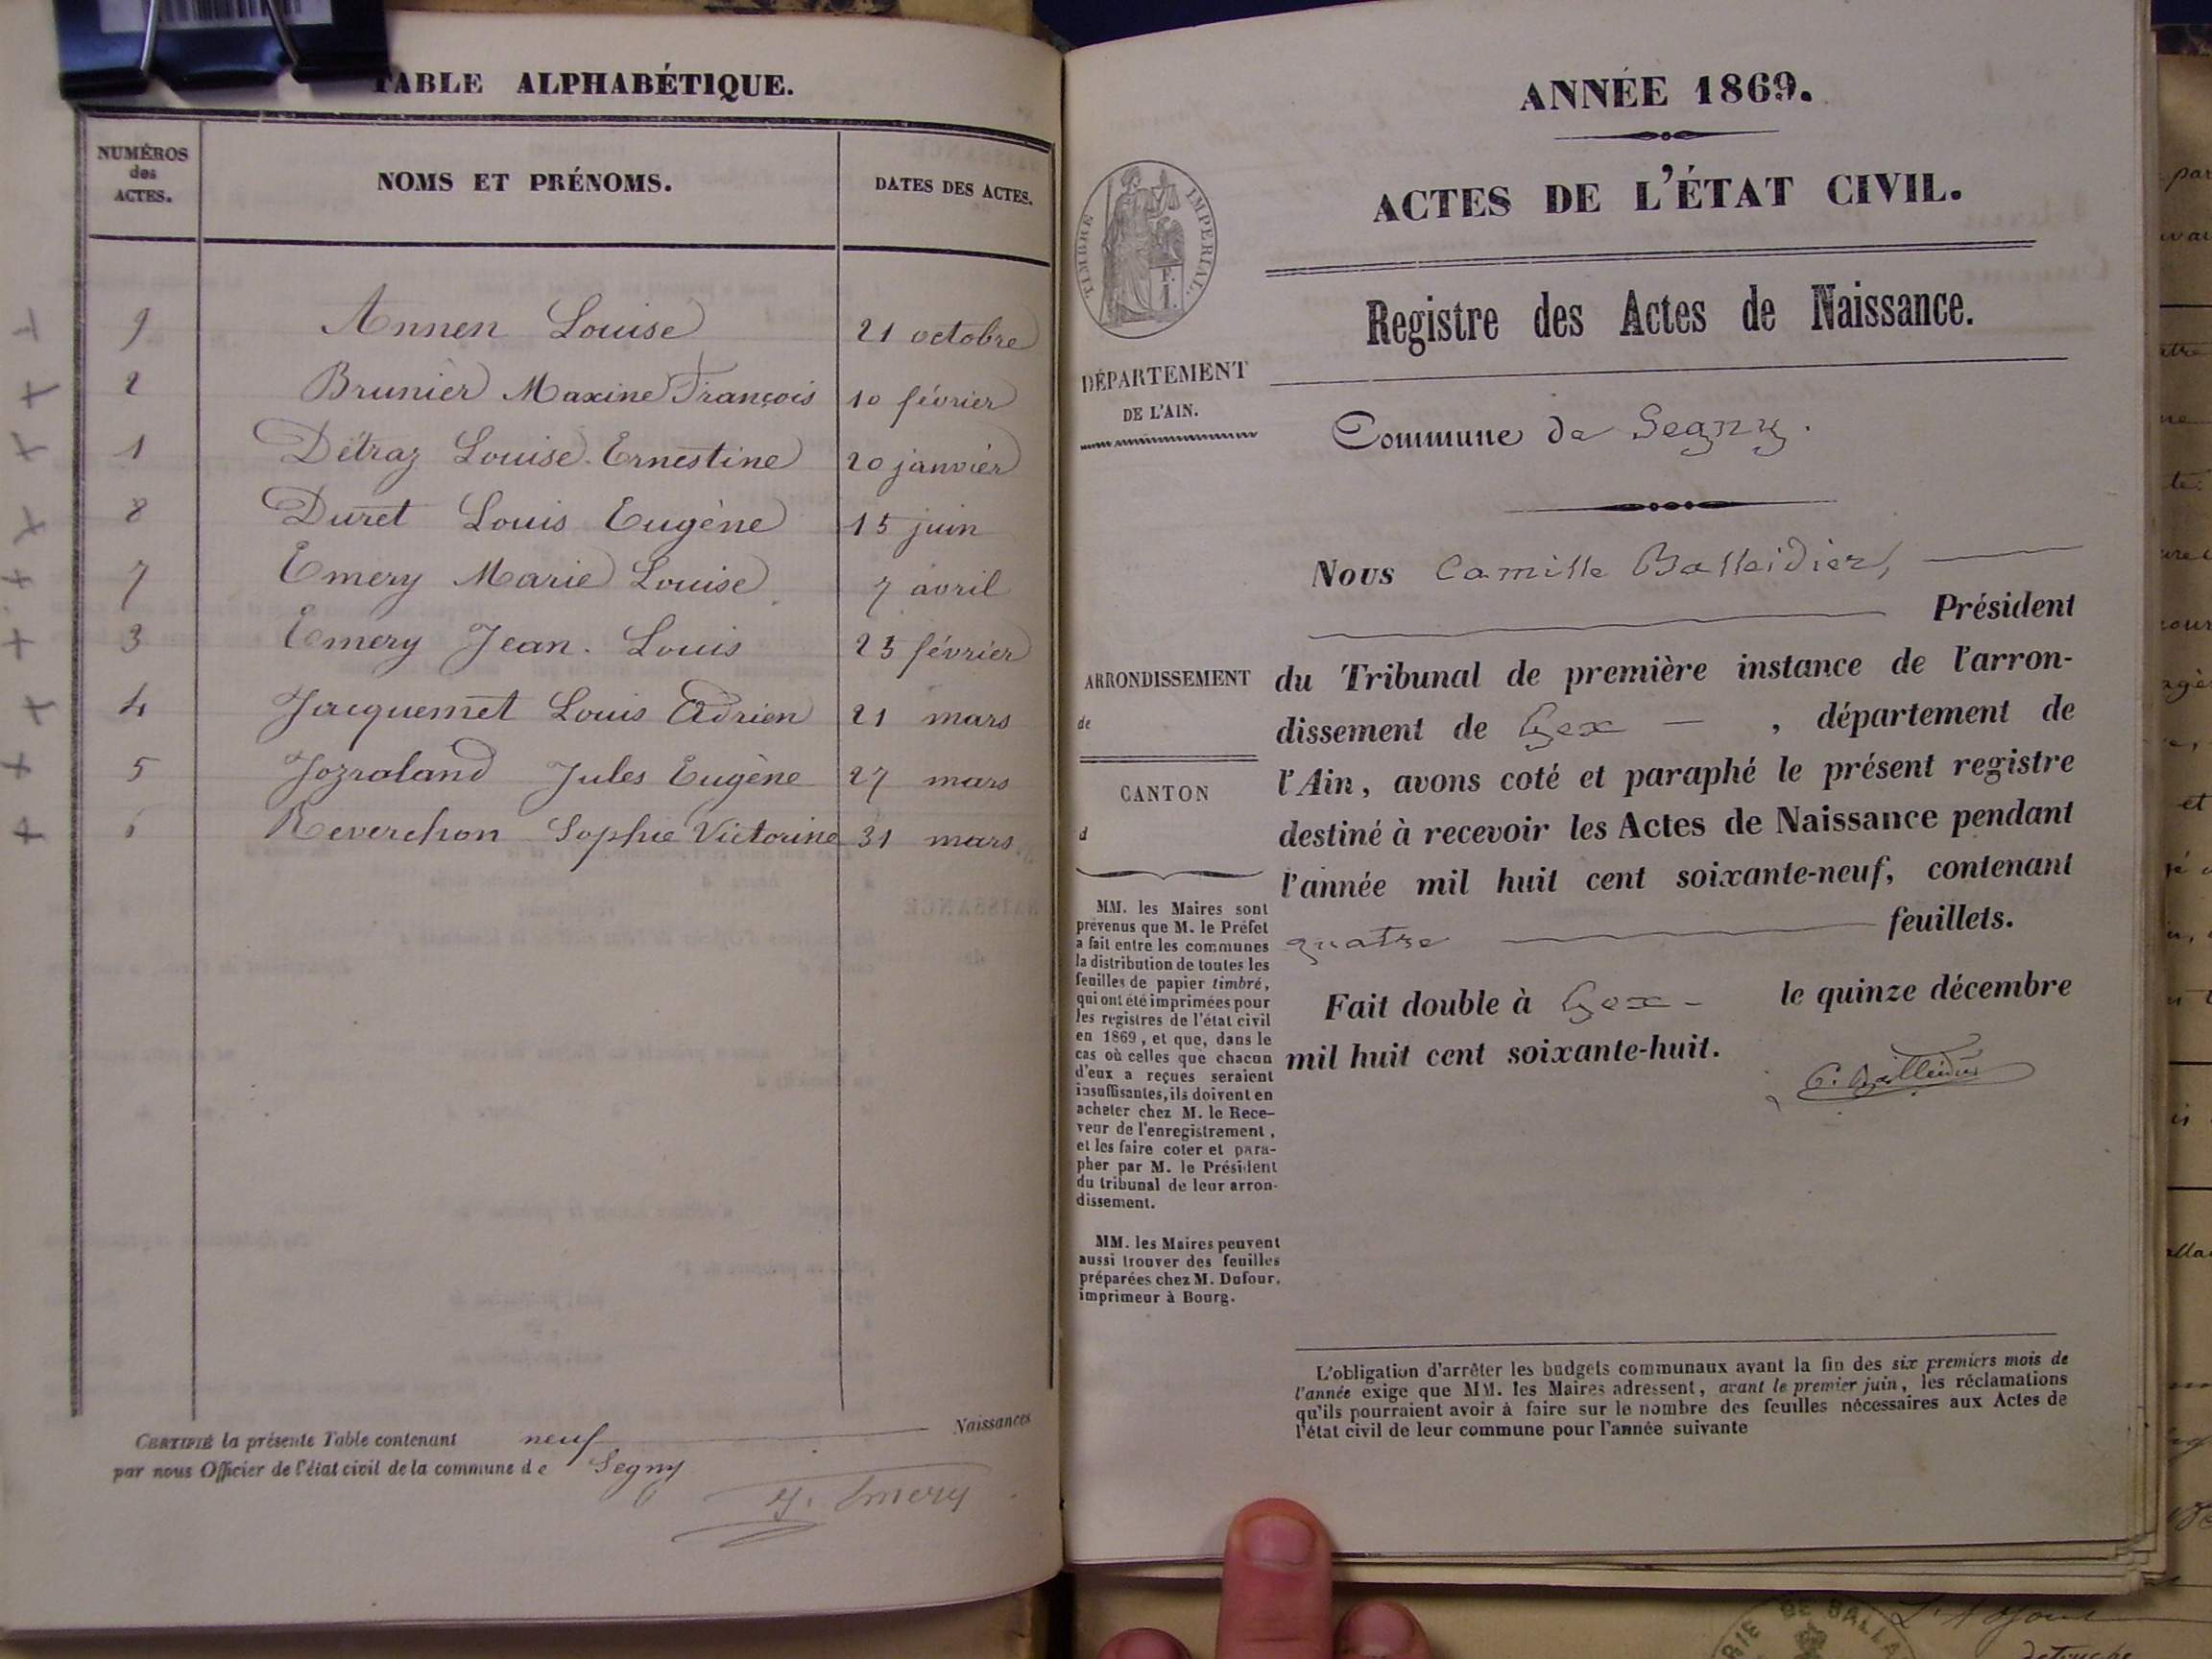 TABLE ALPHABÉTIQUE.
NUMÉROS des ACTES. NOMS ET PRÉNOMS. DATES DES ACTES.
9 Annen Louise 21 octobre
2 Brunier Maxine François 10 février
1 Détraz Louise Ernestine 20 janvier
8 Duret Louis Eugène 15 juin
7 Emery Marie Louise 7 avril
3 Emery Jean Louis 23 février
4 Jacquemet Louis Adrien 21 mars
5 Jozraland Jules Eugène 27 mars
6 Reverchon Sophie Victorine 31 mars
CERTIFIÉ la présente Table contenant neuf Naissances
par nous Officier de l'état civil de la commune de Segny
J. Emery
ANNÉE 1869.
ACTES DE L'ÉTAT CIVIL.
TIMBRE IMPÉRIAL.
Registre des Actes de Naissance.
DÉPARTEMENT
DE L'AIN.
Commune de Segny.
Nous Camille Balleidier,
Président
ARRONDISSEMENT
de
CANTON
d
du Tribunal de première instance de l'arron-
dissement de Gex , département de
l'Ain, avons coté et paraphé le présent registre
destiné à recevoir les Actes de Naissance pendant
l'année mil huit cent soixante-neuf, contenant
quatre feuillets.
Fait double à Gex le quinze décembre
mil huit cent soixante-huit.
C. Balleidier
MM. les Maires sont
prévenus que M. le Préfet
a fait entre les communes
la distribution de toutes les
feuilles de papier timbré,
qui ont été imprimées pour
les registres de l'état civil
en 1869, et que, dans le
cas où celles que chacun
d'eux a reçues seraient
insuffisantes, ils doivent en
acheter chez M. le Rece-
veur de l'enregistrement,
et les faire coter et para-
pher par M. le Président
du tribunal de leur arron-
dissement.
MM. les Maires peuvent
aussi trouver des feuilles
préparées chez M. Dufour,
imprimeur à Bourg.
L'obligation d'arrêter les budgets communaux avant la fin des six premiers mois de
l'année exige que MM. les Maires adressent, avant le premier juin, les réclamations
qu'ils pourraient avoir à faire sur le nombre des feuilles nécessaires aux Actes de
l'état civil de leur commune pour l'année suivante